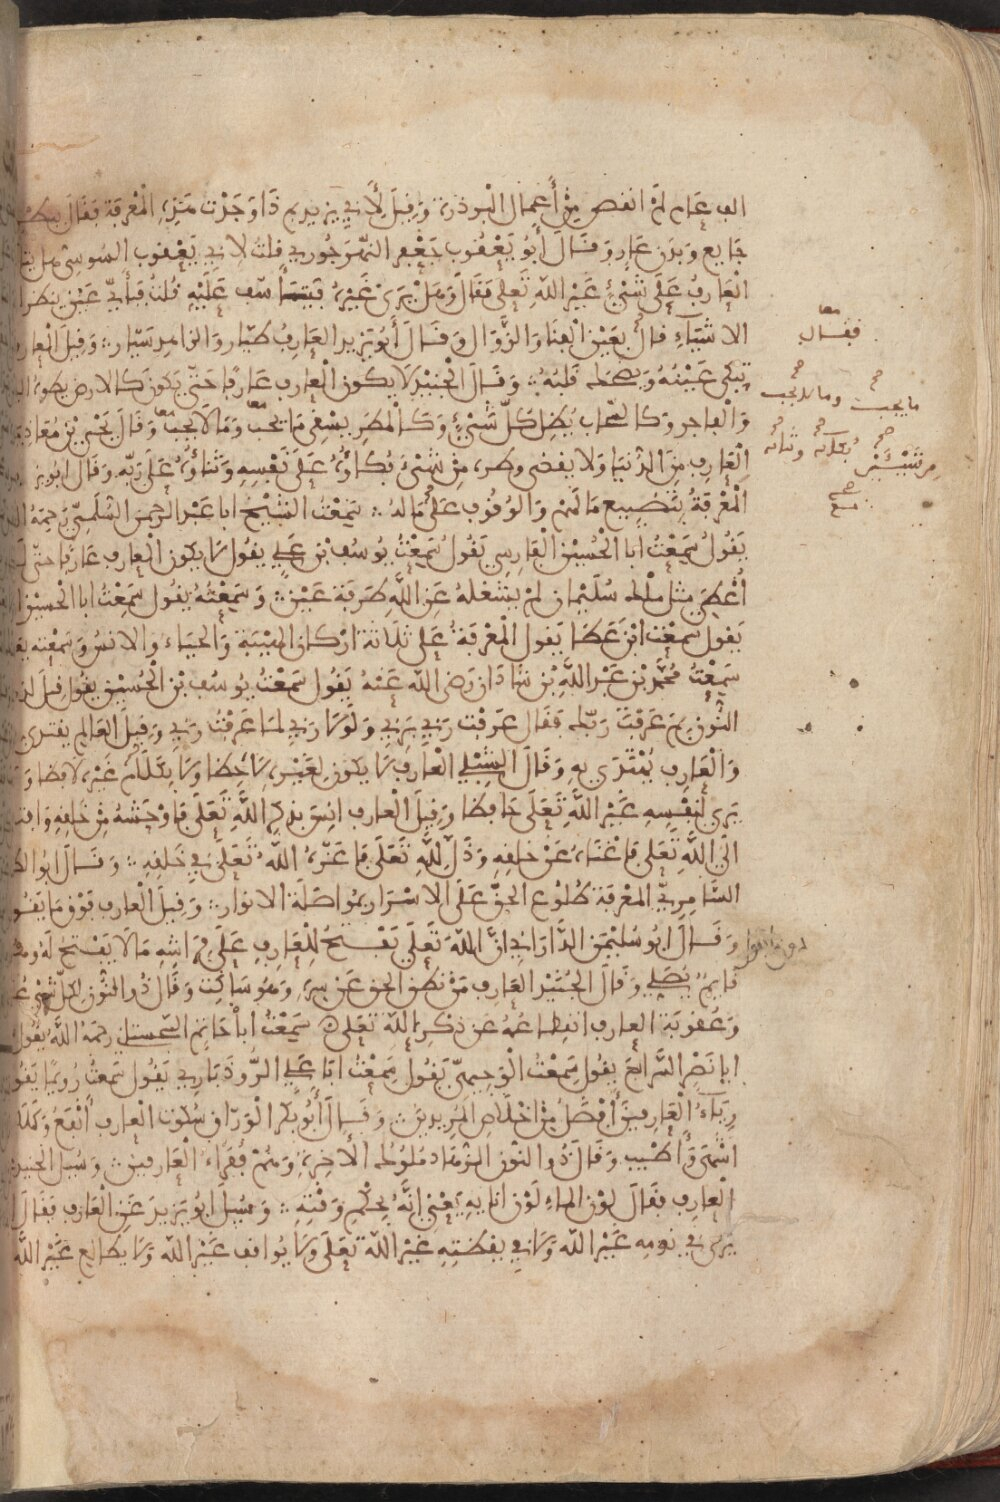 الف عام لم انقص من أعمال البر ذرة وَقِيلَ لأبي يزيد بم ذا وجدت هذه المعرفة فقال ببطن
جايع وبدن عار وقال أبو يعقوب النهرجوري قلت لأبي يعقوب السوسي هل يتا
العارف على شيء غير الله تعلى فقال وهل يرى غيره فيتأسف عليه قلت فبأي عين ينظر
الاشياء قال بعين الفنا والزوال وقال أبو يزيد العارف طيار والزاهد سيار وقيل العارف
تبكي عينه ويضحك قلبه وقال الجنيد لا يكون العارف عارفا حتى يكون كالارض يطوه البر
والفاجر وكالسحاب يظل كل شيء وكالمطر يسقي ما يحب وما لا يحب وقال يحيى بن معاذ
العارف من الدنيا ولا يقضي وطره من شيئين بكاؤه على نفسه وثناؤه على ربه وقال ابو يزيد
المعرفة بتضييع ما لهم والوقوف على ما له سمعت الشيخ ابا عبد الرحمن السلمي رحمه الله
يقول سمعت ابا الحسين الفارسي يقول سمعت يوسف بن علي يقول لا يكون العارف عارفا حتى لو
أعطي مثل ملك سليمان لم يشغله عن الله طرفة عين وسمعته يقول سمعت ابا الحسين
يقول سمعت ابن عطا يقول المعرفة على ثلاثة اركان الهيبة والحياء والانس وسمعته يقول
سمعت محمد بن عبد الله بن شاذان رضي الله عنه يقول سمعت يوسف بن الحسين يقول قيل لذي
النون بم عرفت ربك فقال عرفت ربي بربي ولولا ربي لما عرفت ربي وقيل العالم يقتدى
والعارف يهتدى به وقال الشبلي العارف لا يكون لغيره لاحظا ولا بكلام غيره لافظا ولا
يرى لنفسه غير الله تعلى حافظا وقيل العارف انس بذكر الله تعلى فاوحشه من خلقه وافتقر
الى الله تعلى فاغناه عن خلقه وذل لله تعلى فاعزه الله تعلى في خلقه وقال ابو الطيب
السامري المعرفة طلوع الحق على الاسرار بمواصلة الانوار وقيل العارف فوق ما يقول
وقال ابو سليمن الداراني ان الله تعلى يفتح للعارف على فراشه ما لا يفتح له وهو
قايم يصلي وقال الجنيد العارف من نطق الحق عن سره وهو ساكت وقال ذو النون لكل شيء
وعقوبة العارف انقطاعه عن ذكر الله تعلى سمعت أبا حاتم السجستاني رحمه الله يقول
ابا نصر السراج يقول سمعت الوجيهي يقول سمعت ابا علي الروذباري يقول سمعت رويما يقول
رياء العارفين أفضل من اخلاص المريدين وقال أبو بكر الوراق سكوت العارف أنفع وكلامه
اشهى وأطيب وقال ذو النون الزهاد ملوك الآخرة وهم فقراء العارفين وسئل الجنيد
العارف فقال لون الماء لون انائه يعني انه بحكم وقته وسئل ابو يزيد عن العارف فقال
يرى في نومه غير الله ولا في يقظته غير الله تعلى ولا يوافق غير الله ولا يطالع غير الله
فقال
ما يحب
وما لا يحب
من شيئين
بكائه
وثنائه